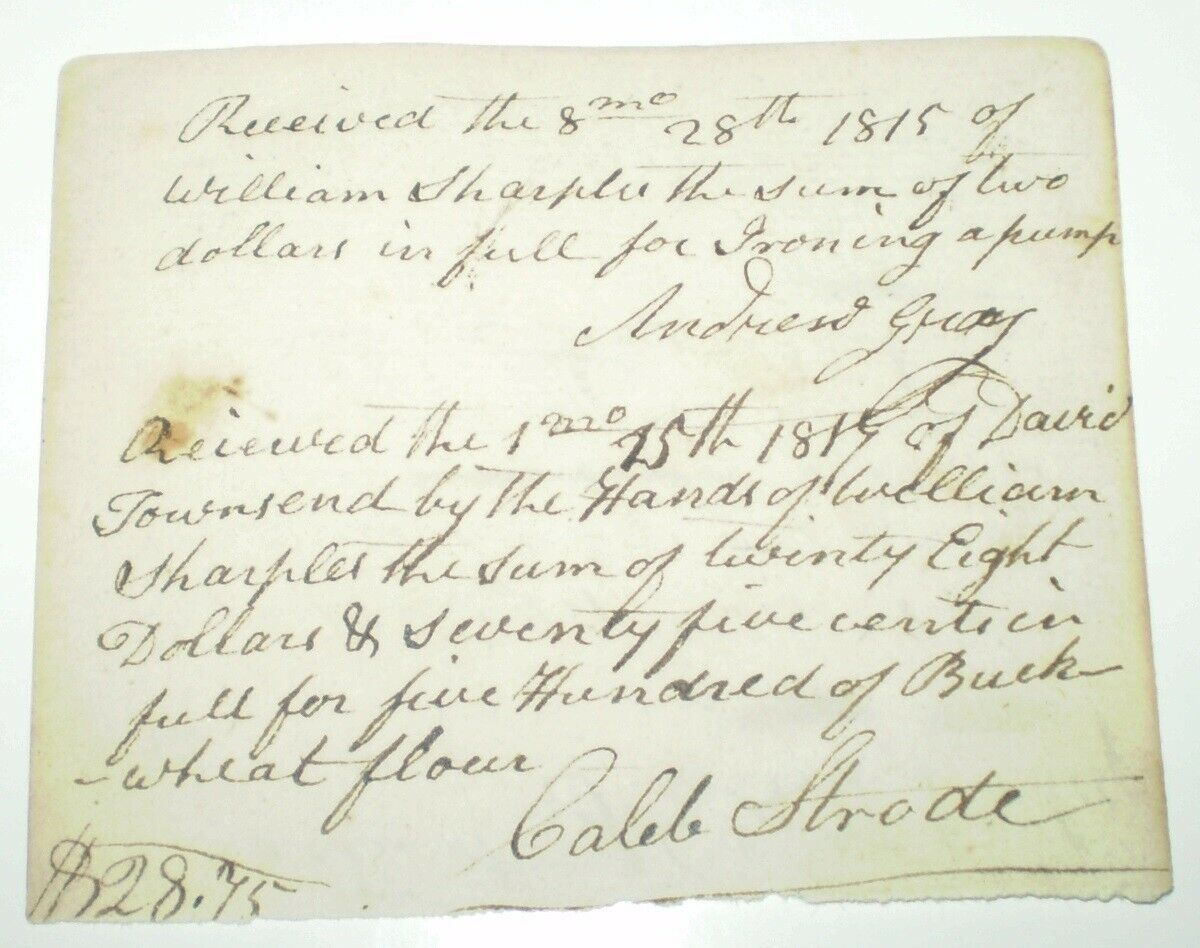 Received the 8mo 28th 1815 of
William Sharples the sum of two
dollars in full for Ironing a pump
Andrew Gray
Reciewed the 1mo 25th 1817 of David
Townsend by the Hands of William
Sharples the sum of twinty Eight
Dollars & seventy five cents in
full for five Hundred of Buck-
-wheat flour
Caleb Strode
$28.75